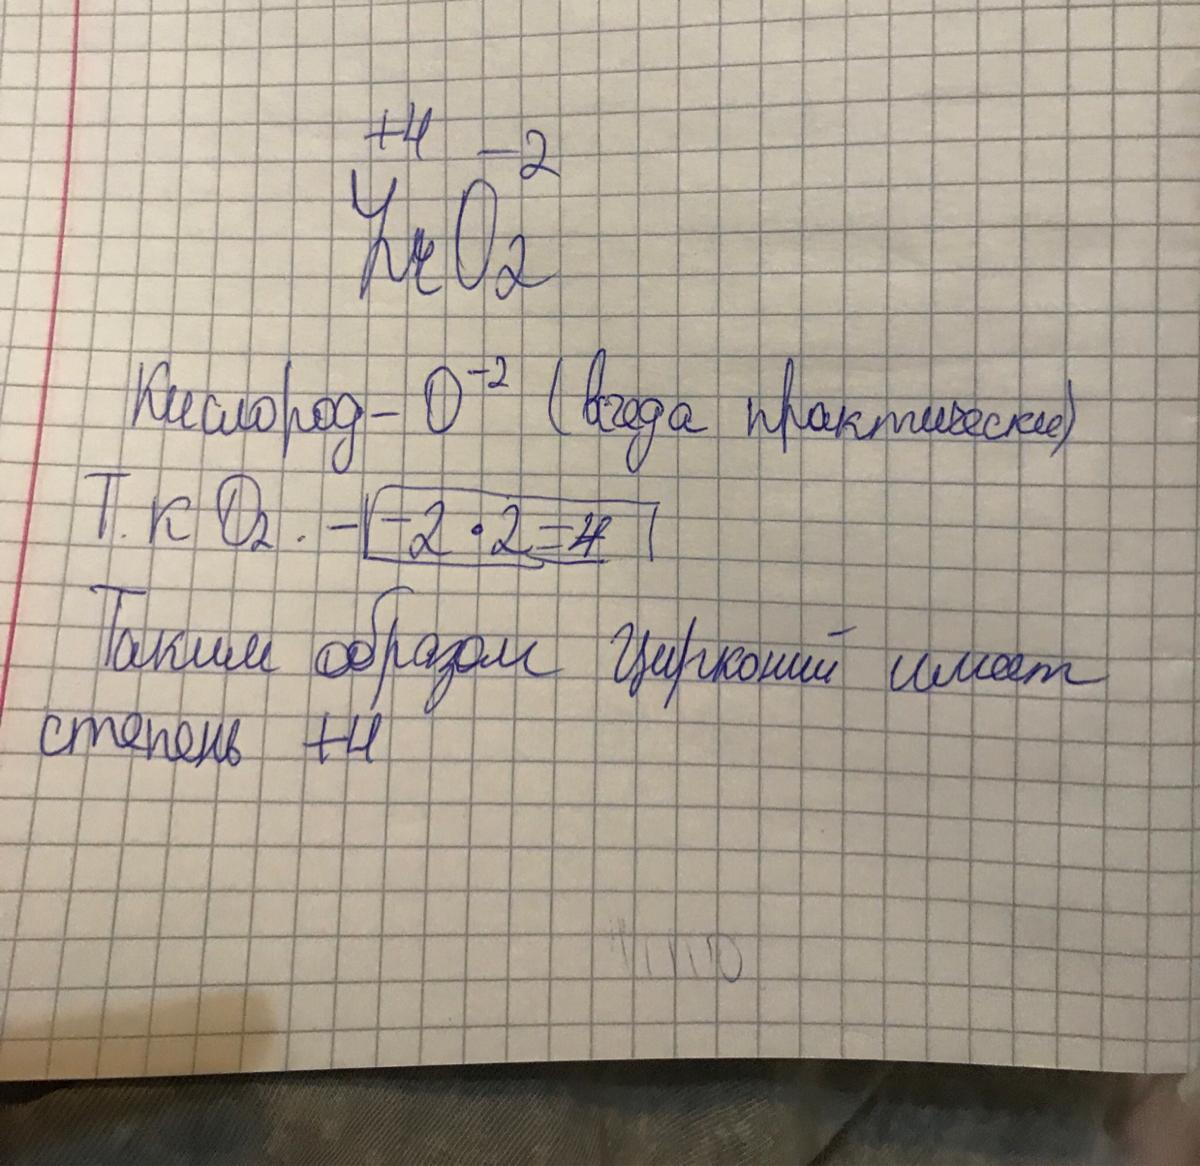 +4 -2
ZrO2
Кислород - O⁻² (всегда практически)
Т.к O2. - -2 · 2 = 4
Таким образом Цирконий имеет
степень +4